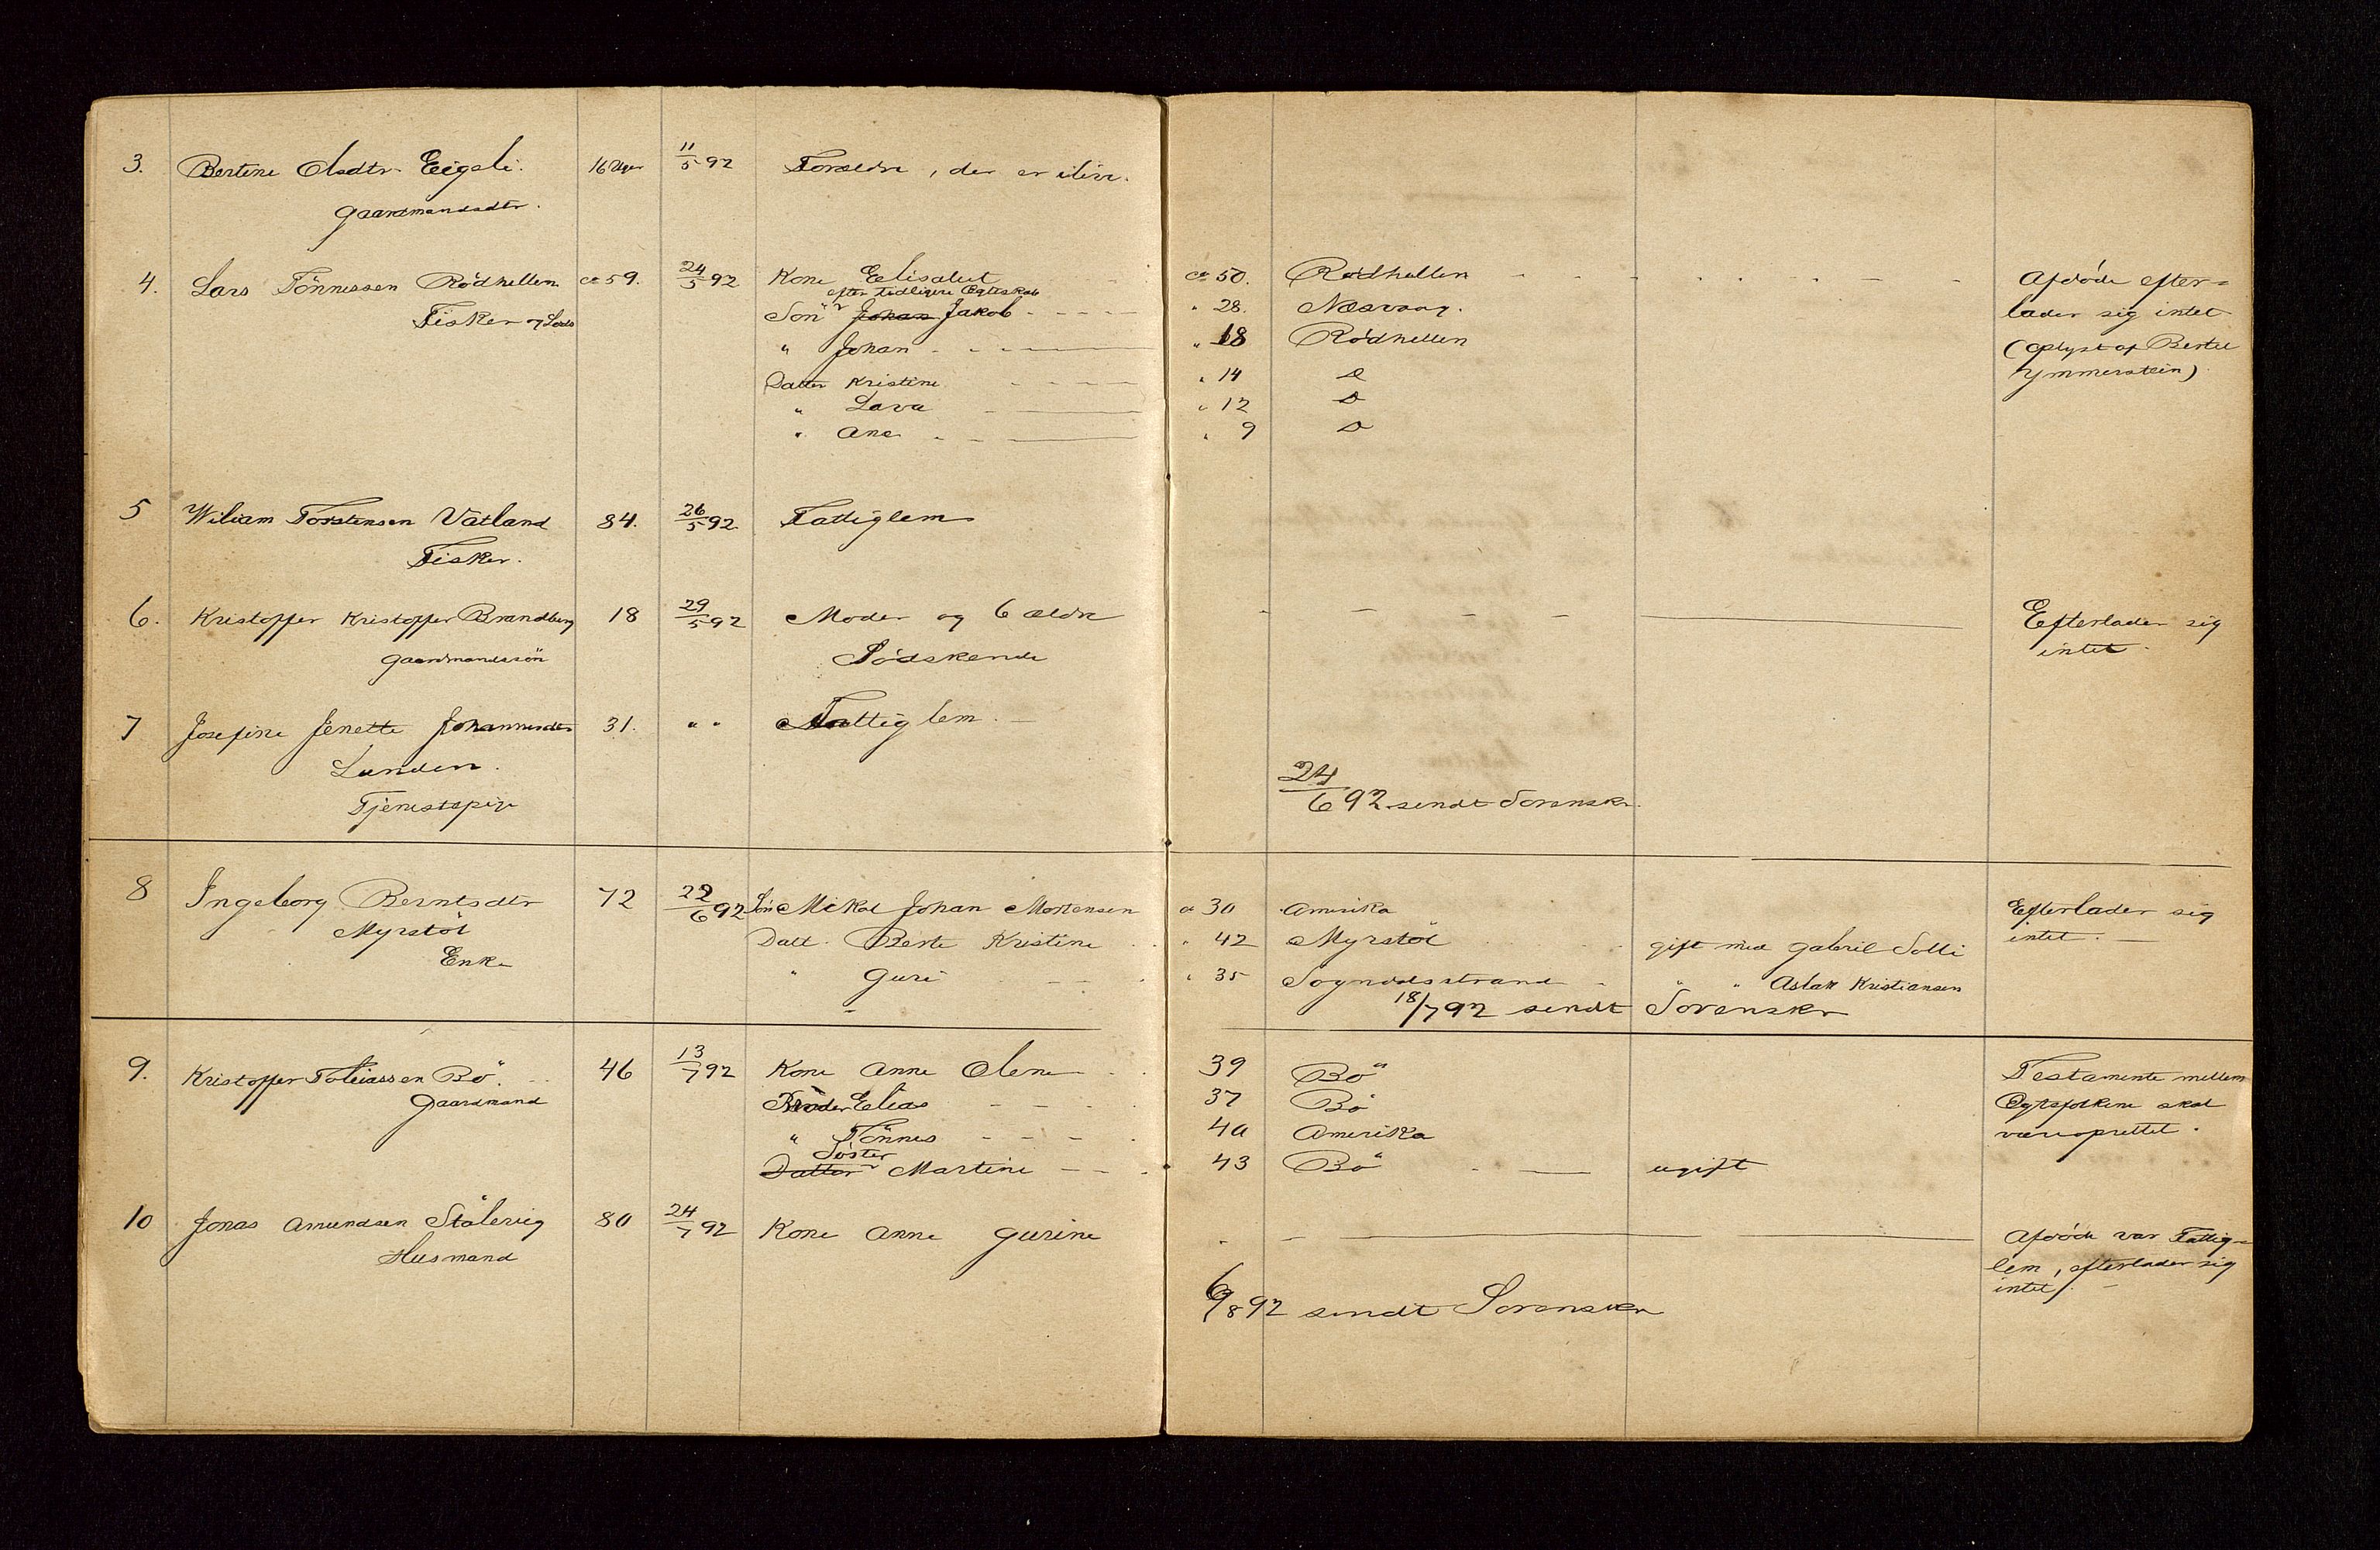 3. Bertine Olsdtr. Eigeli. 16 Uger 11/5 92 Forældre, der er ilive.
Gaardmandsdtr.
4. Lars Tönnessen Rödhellen ca 59. 24/5 92 Kone Elisabet ca 50. Rødhellen Afdøde efter-
efter tidligere Ægteskab
Fisker og Lods Sön Johan Jakob " 28. Næsvaag. lader sig intet
" Johan " 18 Rödhellen (oplyst af Bertel
Datter Kristine " 14 D Ymmerstein)
" Lava " 12 D
" Ane " 9 D
5 Wiliam Torstensen Vatland 84. 26/5 92 Fattiglem
Fisker.
6. Kristoffer Kristoffer Brandberg 18 29/5 92 Moder og 6 ældre Efterlader sig
Gaardmandssön Södskende intet.
7 Josefine Jenette Johannesdtr 31. " " Fattiglem.
Lunden.
Tjenestepige
24/6 92 sendt Sorenskr.
8 Ingeborg Berntsdtr 72 22/6 92 Sön Mikal Johan Mortensen ca 30 Amerika Efterlader sig
Myrstöl Datt. Berte Kristine " 42 Myrstöl gift med Gabriel Solli intet.
Enke " Guri " 35 Sogndalsstrand " " Aslak Kristiansen
18/7 92 sendt Sorenskr
9. Kristoffer Tobiassen Bö. 46 13/7 92 Kone Anne Olene 39 Bö Testamente mellem
Gaardmand Broder Elias 37 Bö Egtefolkene skal
" Tönnes 40 Amerika være oprettet.
Söster
Datter Martine 43 Bö ugift
10 Jonas Amundsen Stölevig 80 24/7 92 Kone Anne Gurine Afdöde var Fattig-
Husmand lem, efterlader sig
intet.
6/8 92 sendt Sorenskr